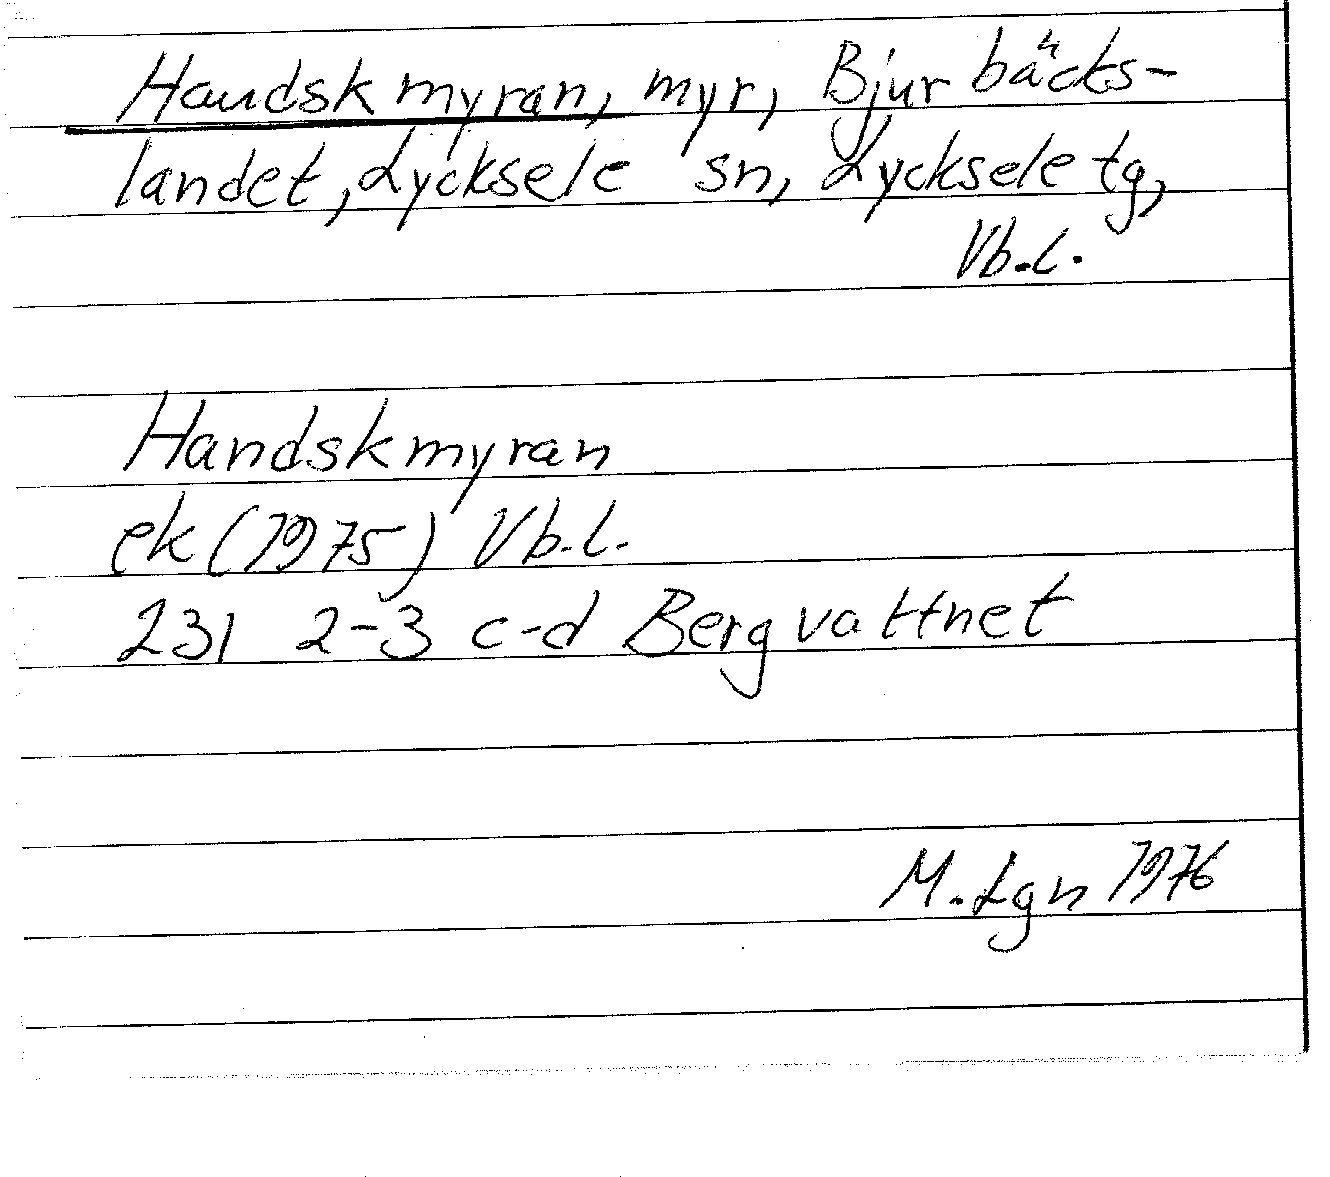 Handskmyran, myr, Bjurbäcks-
landet, Lycksele sn, Lycksele tg,
Vb.l.
Handskmyran
ek (1975) Vb.l.
231 2-3 c-d Bergvattnet
M. Lgn 1976